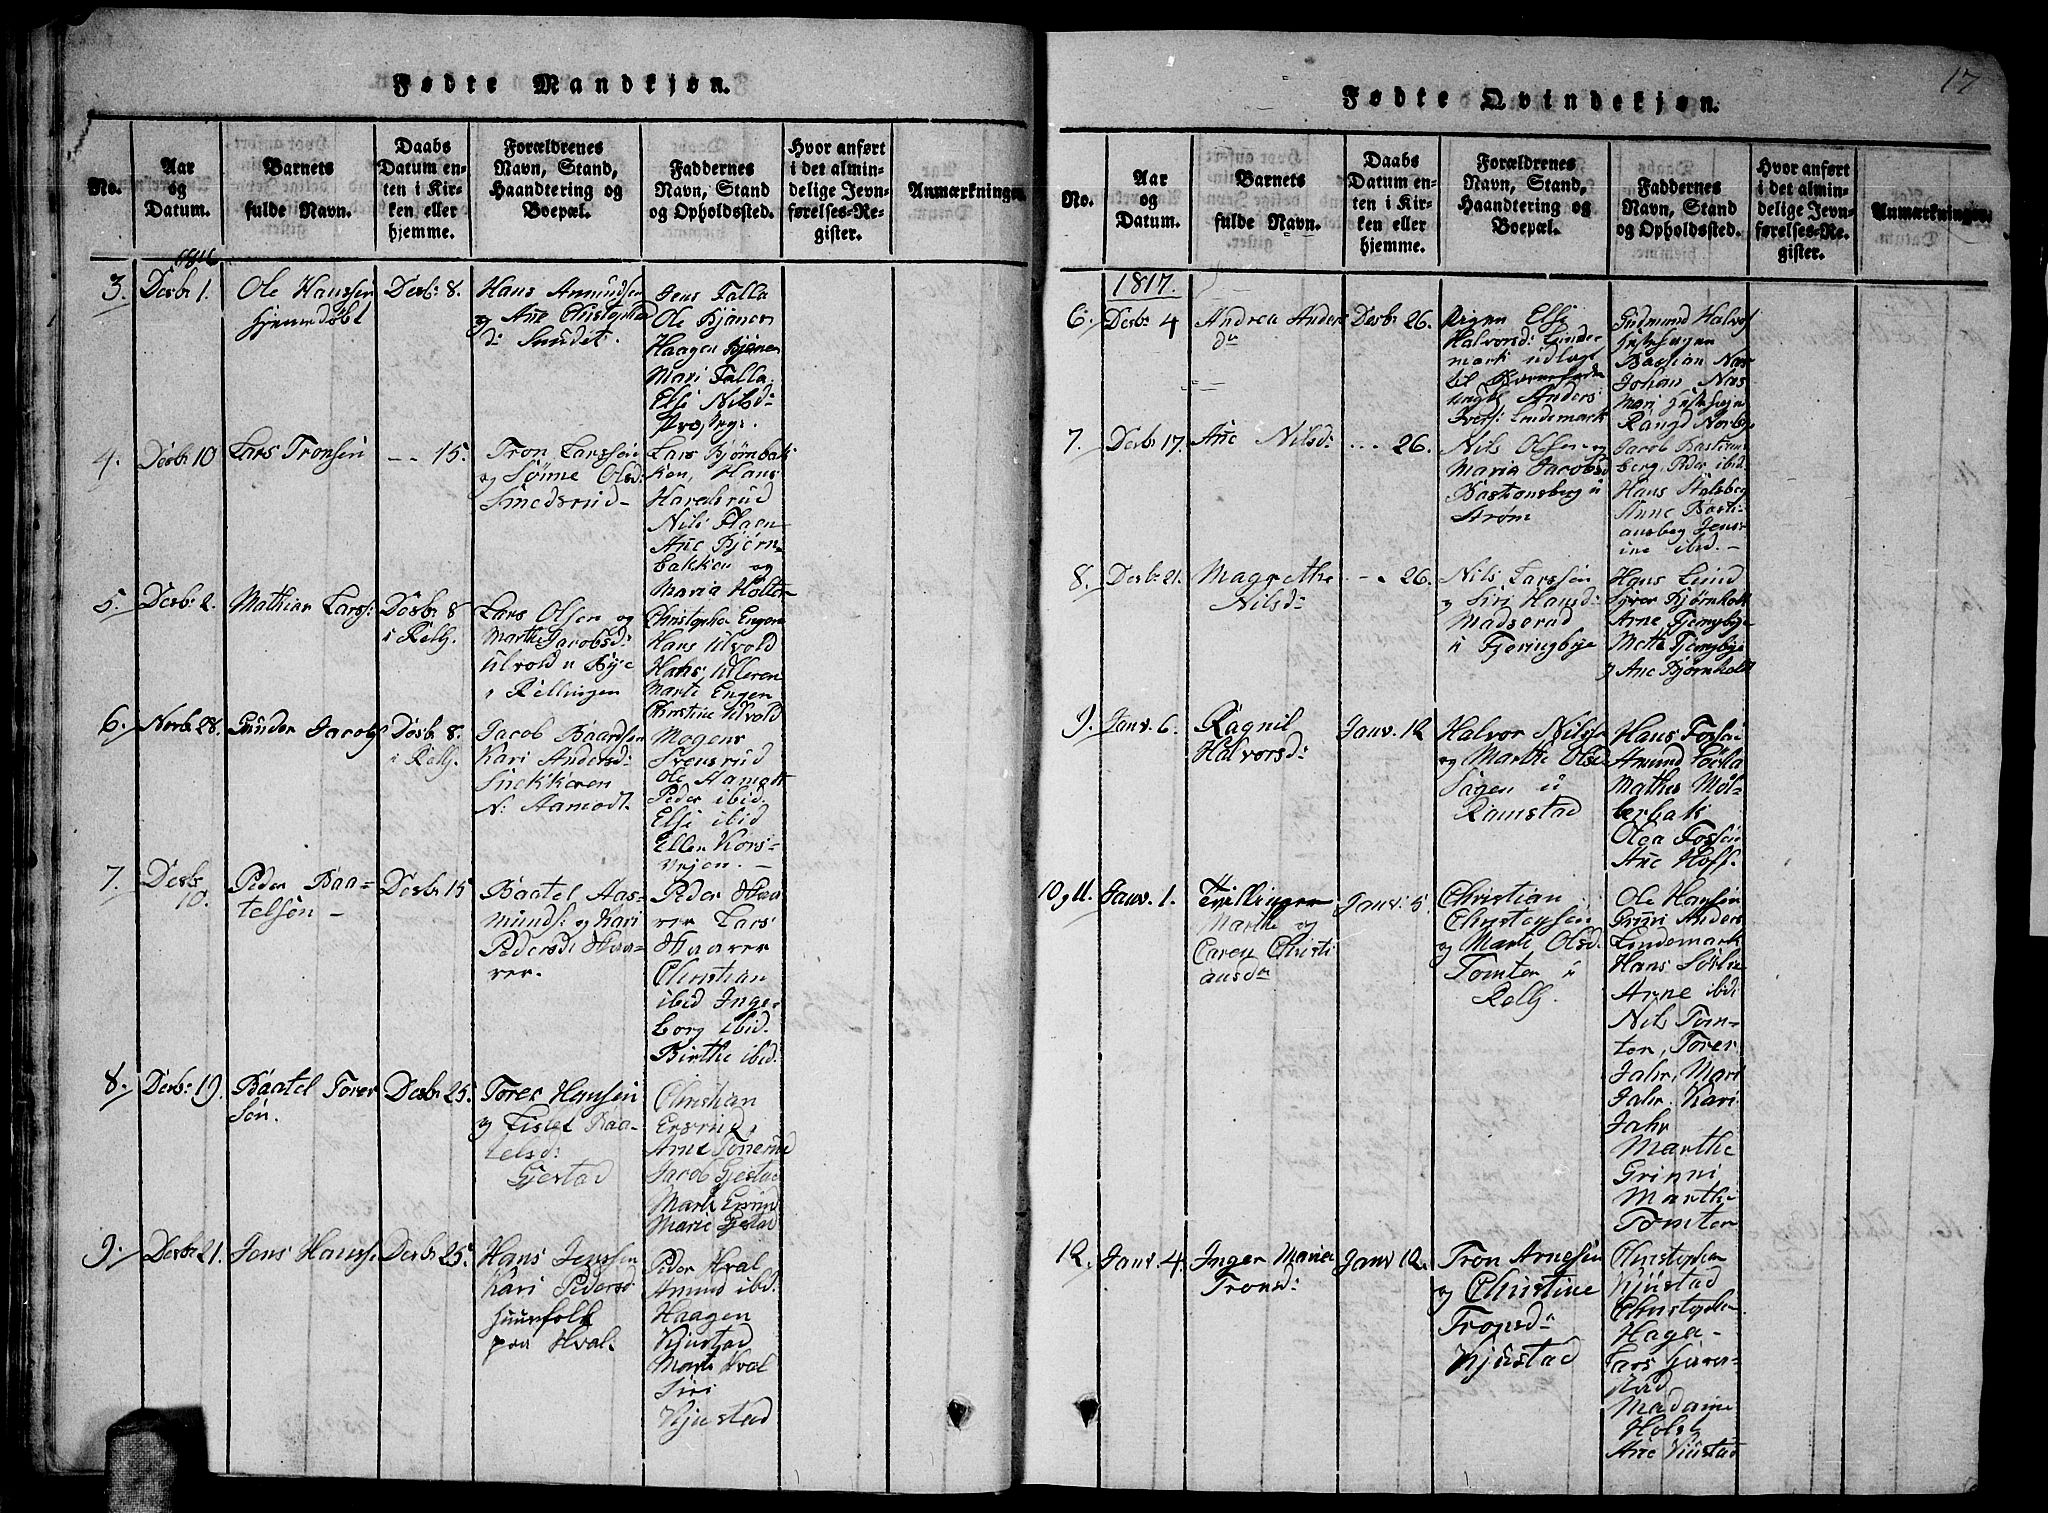 Fødte Mandkjøn.
No.
Aar
og
Datum.
Barnets
fulde Navn.
Daabs
Datum en-
ten i Kir-
ken eller
hjemme.
Forældrenes
Navn, Stand,
Haandtering og
Boepæl.
Faddernes
Navn, Stand
og Opholdssted.
Hvor anført
i det almin-
delige Jevn-
førelses-Re-
gister.
Anmærkninger.
1816
3.
Desbr 1.
Ole Hanssen
hjemedøbt
Desbr: 8.
Hans Amundsen
og Ane Christophe
d: Sundet.
Jens Falla
Ole Kjøner
Haagen Kjønen
Mari Falla
Elsi Nilsd:
4.
Desbr 10
Lars Tronsen
- - 15.
Tron Larssen
og Sønne Olsd:
Smedsrud-
Lars Bjørnbak
ken, Hans
Haralsrud
Nils Flaen-
Ane Bjørn-
bakken og
Maria Holter
5.
Desbr: 2.
Mathias Larss:
Desbr 8
i Relg.
Lars Olsen og
Marthe Jacobsd:
Ulvold u Bye
i Rellingen
Christopher Engen
Hans Ulvold
Hans Ulleren
Marte Engen
Christine Ulvold
6.
Novb. 28.
Gunder Jacobs
Desbr 8.
i Relg.
Jacob Baardsen
Kari Andersd:
Snekkeren
N: Aamodt.
Mogens
Svensrud
Ole Aamodt
Peder ibid.
Elsi ibid
Ellen Kors-
vejen. -
7.
Desbr
10.
Peder Baa-
telsøn -
Desbr 15
Baatel Aas-
munds: og Kari
Pedersd: Haa-
rer.
Peder Haa-
rer Lars
Haarer
Christian
ibid Inger
borg ibid.
Birthe ibid.
8.
Desbr: 19.
Baatel Torer
Søn.
Desbr 25.
Torer Hansen
og Lislel Baa-
telsd:
Gjestad
Christian
Ersrud,
Arne Tørerud
Jacob Gjestad
Marte Ersrud
Marie Gjestad
9.
Desbr 21.
Jens Hansse
Desbr 25.
Hans Jenssen
Kari Pedersd
huusfolk
paa Hval.
Peder Hval
Amund ibid.
Haagen
Kjustad
Marte Hval
Siri
Kjustad
17
Fødte Qvindekjøn.
No.
Aar
og
Datum.
Barnets
fulde Navn.
Daabs
Datum en-
ten i Kir-
ken eller
hjemme.
Forældrenes
Navn, Stand,
Haandtering og
Boepæl.
Faddernes
Navn, Stand
og Opholdssted.
Hvor anført
i det almin-
delige Jevn-
førelses-Re-
gister.
Anmærkninger.
1817.
6.
Desbr 4
Andrea Anders
dr
Desbr 26.
Pigen Else
Halvorsd: Linde
mark udlagt
til Barnefader
ungk: Anders
Iverss: Lindemark
Gudmund Halvors
Bastian Nor
Johan Nor
Mari
Rangd Norby
7.
Desbr 17.
Ane Nilsd:
- - - 26.
Nils Olsen og
Maria Jacobsd
Bastionsberg u
Strøm
Jacob Bastiens
berg. Peder ibid.
Hans Stalsberg
Anne Basti-
ansberg Jens
ine ibid. -
8.
Desbr. 21.
Magrethe
Nilsd:
- - 26.
Nils Larssen
og Siri Hansd:
Madserud
u Fjeringbye
Hans Lund
Syver Bjørnholt
Arne Fjeringbye
Mette Fjeringbye
og Ane Bjørnholt
9.
Janv. 6.
Ragnil
Halvorsd:
Janv. 12
Halvor Nilss
og Marthe Olsd
Sagen u
Ramstad
Hans Fossen
Amund Tølla
Mathis Møl-
lerbak
Olea Fossen
Ane Hoff.
10 og 11.
Janv. 1.
Tvillinger
Marthe og
Caren Christi
ansdr
Janv: 5.
Christian
Christensen
og Marte Olsd.
Tomter u
Relg.
Ole Hansen
Guri Anders
Lindemark
Hans Sørlie
Arne ibid:
Nils Tom-
ter, Torer
Jahr, Mari
Jahr. Kari
Jahr
Marthe
Grinni
Marthe
Tomter
12.
Janv. 4.
Inger Maria
Tronsd:
Janv 12.
Tron Arnesen
og Christine
Tronsd:
Kjustad
Christopher
Kjustad
Christopher
Haga-
Lars
Madame
Holst
Ane Kjustad